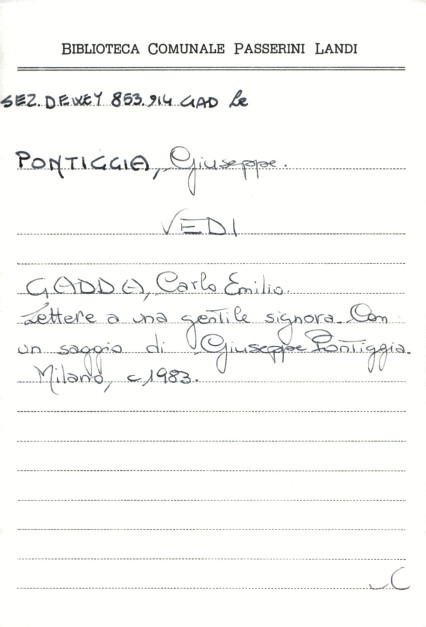 BIBLIOTECA COMUNALE PASSERINI LANDI
SEZ. DEWEY 853.914 GAD Le
PONTIGGIA, Giuseppe.
VEDI
GADDA, Carlo Emilio.
Lettere a una gentile signora. Con
un saggio di Giuseppe Pontiggia.
Milano, c1983.